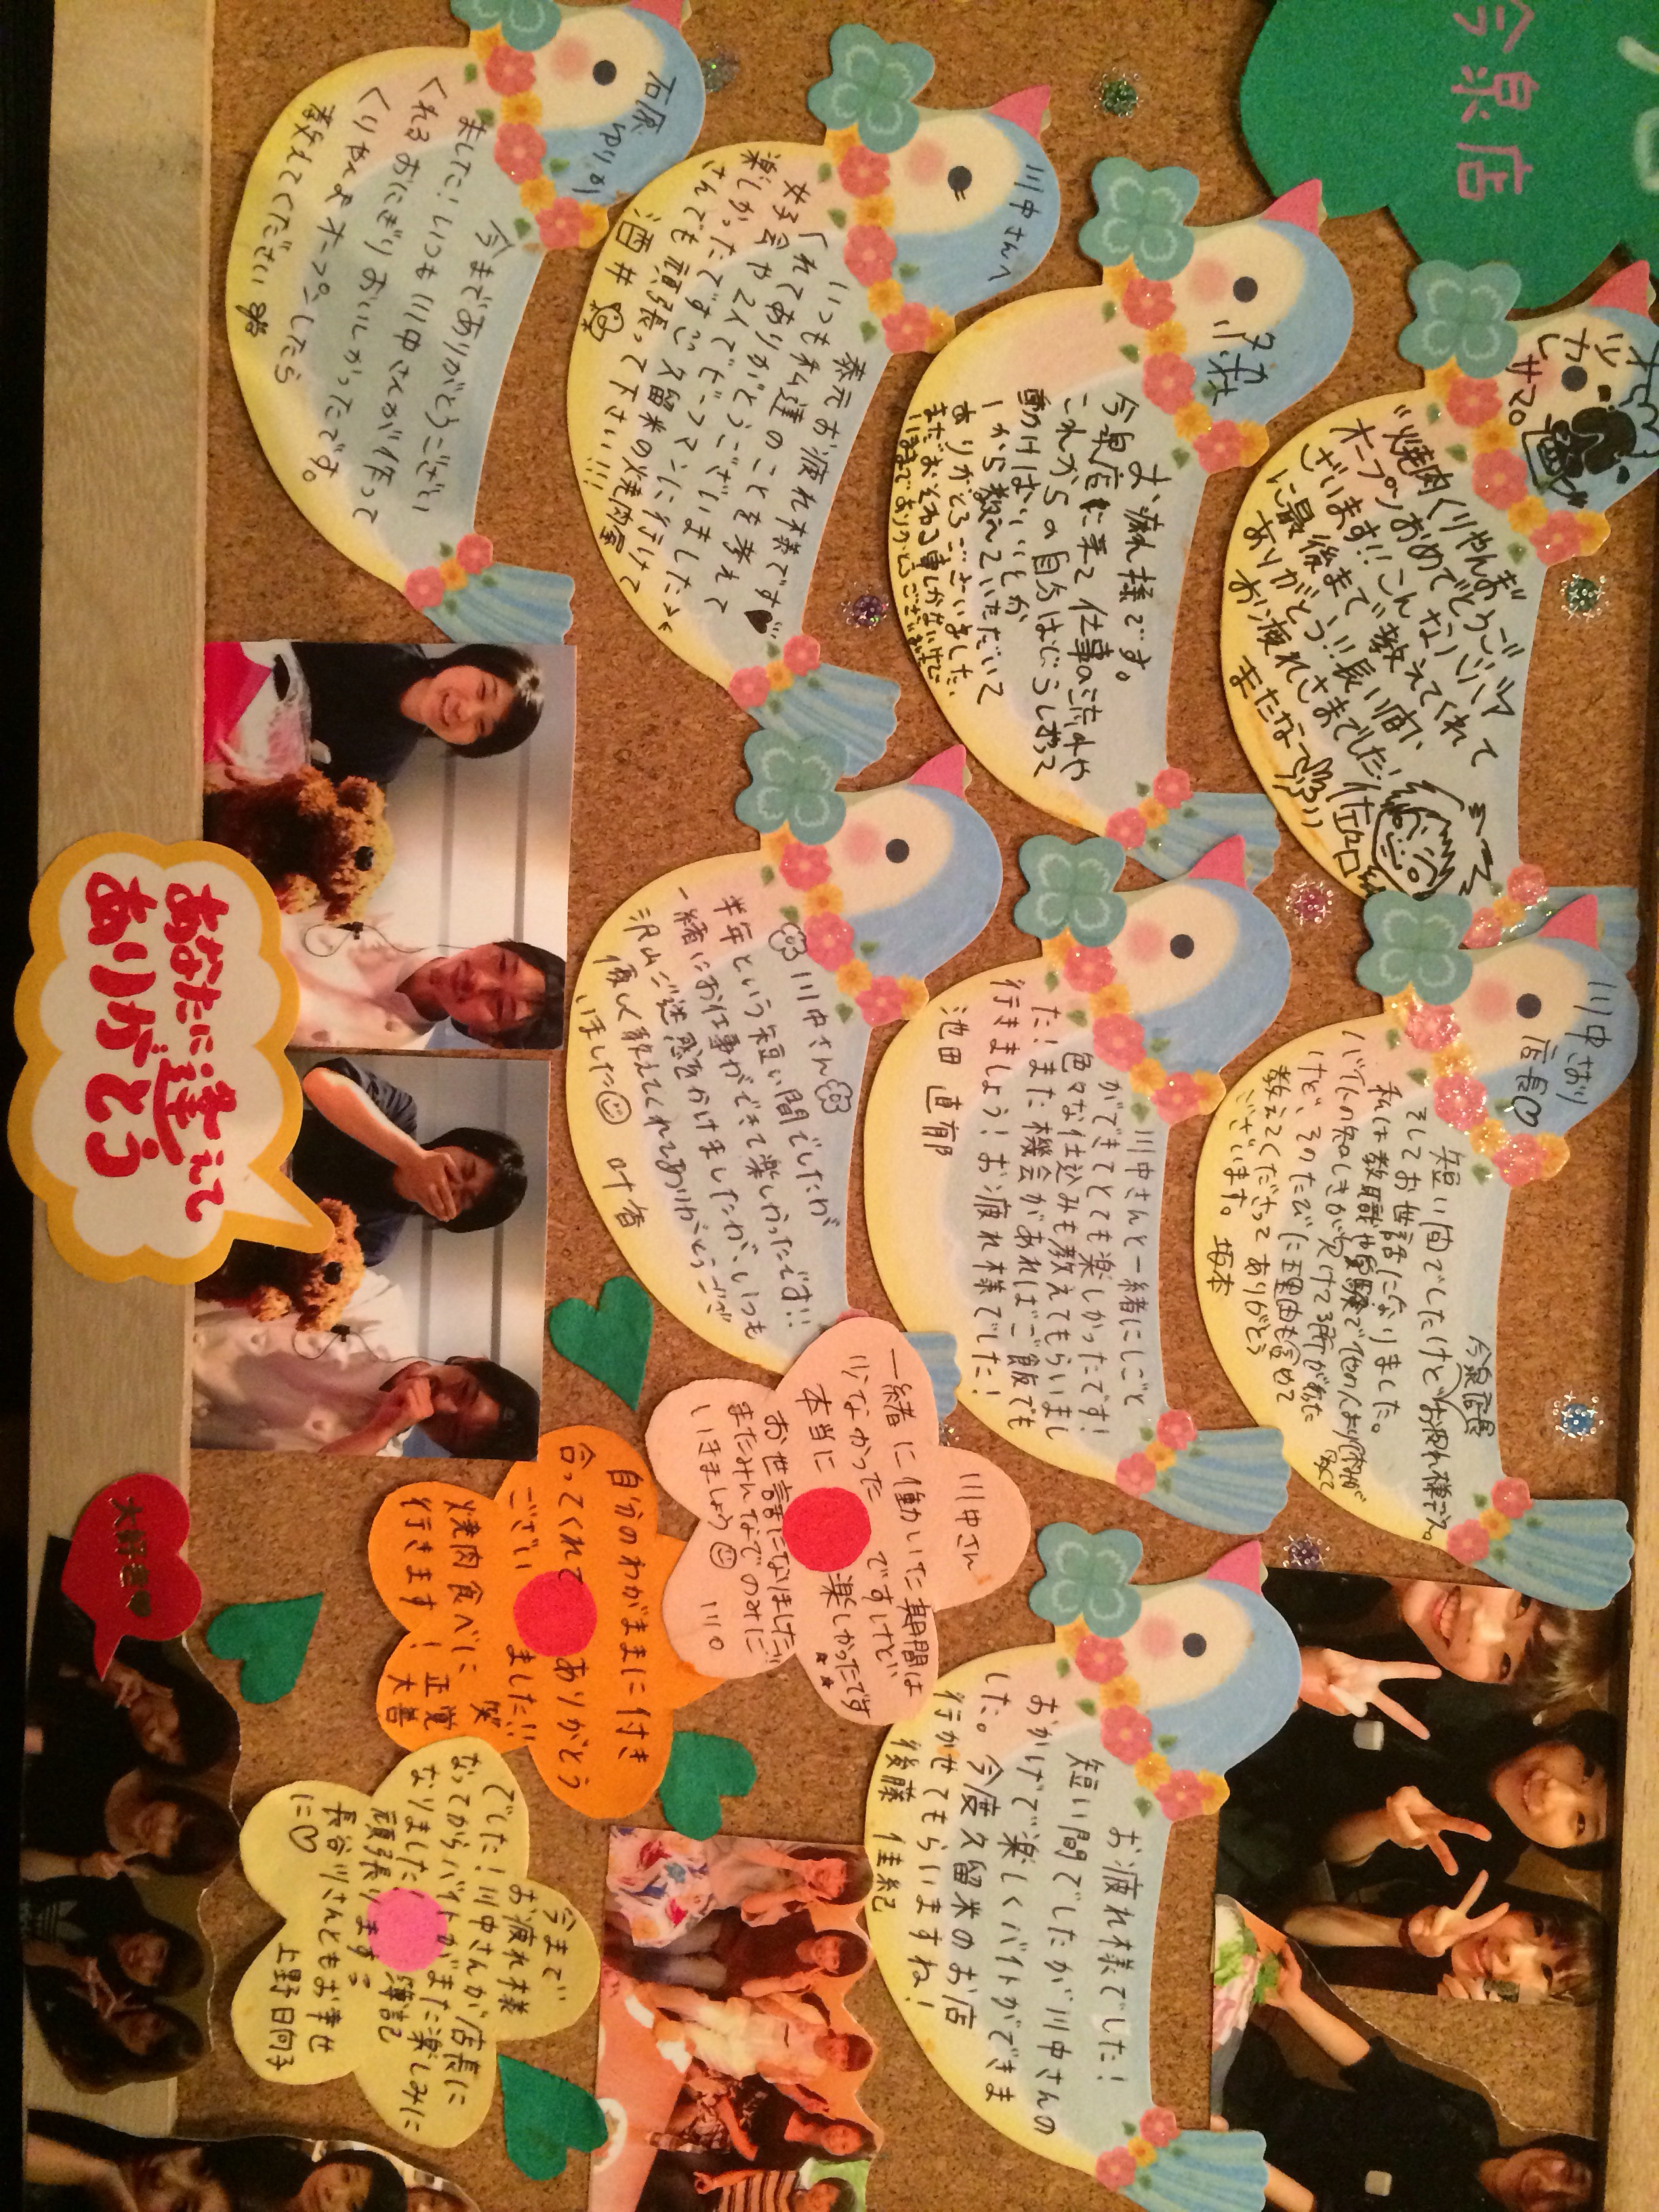 今泉店
オツカレサマっ。
"焼肉くりやんま"
オープンおめでとうござ
います!!こんなバツマ
に最後まで教えてくれて
ありがとう!!長い間、
お疲れさまでした!
またな〜
お疲れ様です。
今泉店に来て仕事の流れや
これからの自分はどうしおって
動けばいいとか
1から教えていただいて
ありがとうございました。
まだおそわる事しかないけど
いままでありがとうございました
川中さんへ
いつも私達のことを考えて
くれてありがとうございました
女子会や2人でビーフマンに行けて
楽しかったです
久留米の焼肉屋
さんでも頑張って下さい!!!
酒井
石原 ゆりか
今まであありがとうござい
ました!いつも川中さんが作って
くれるおにぎりおいしかったです。
くりやんまオープンしたら
教えてください
川中さおり
店長♡
今泉店長
お疲れ様です。
短い間でしたけど
そしてお世話になりました。
けど、そのたびに理由も含めて
教えてくださってありがとう
ございます。 坂本
川中さんと一緒にしごと
ができてとても楽しかったです!
色々な仕込みも教えてもらいまし
た!また機会があればご飯でも
行きましょう!お疲れ様でした!
池田 直郁
川中さん
半年という短い間でしたが
一緒にお仕事ができて楽しかったです!!
沢山ご迷惑をかけましたが、いつも
優しく教えてくれてありがとうござ
いました☺ 叶省
お疲れ様でした!
短い間でしたが川中さんの
おかげで楽しくバイトができま
した。今度久留米のお店
行かせてもらいますね!
後藤 佳紀
川中さん
一緒に働かいた期間は
少なかったですけど
本当に楽しかったです★★
お世話になりました!
またみんなでのみに
いきましょう☺ 川口
自分のわがままに付き
合ってくれてありがとう
ございました!! 笑
焼肉食べに
行きます! 正覚 大善
今まで
お疲れ様
でした!川中さんが店長に
なってからバイトがまた楽しみに
なりました!簿記
頑張ります!
長谷川さんともお幸せ
に♡ 上野日向子
あなたに逢えて
ありがとう
大好き♥